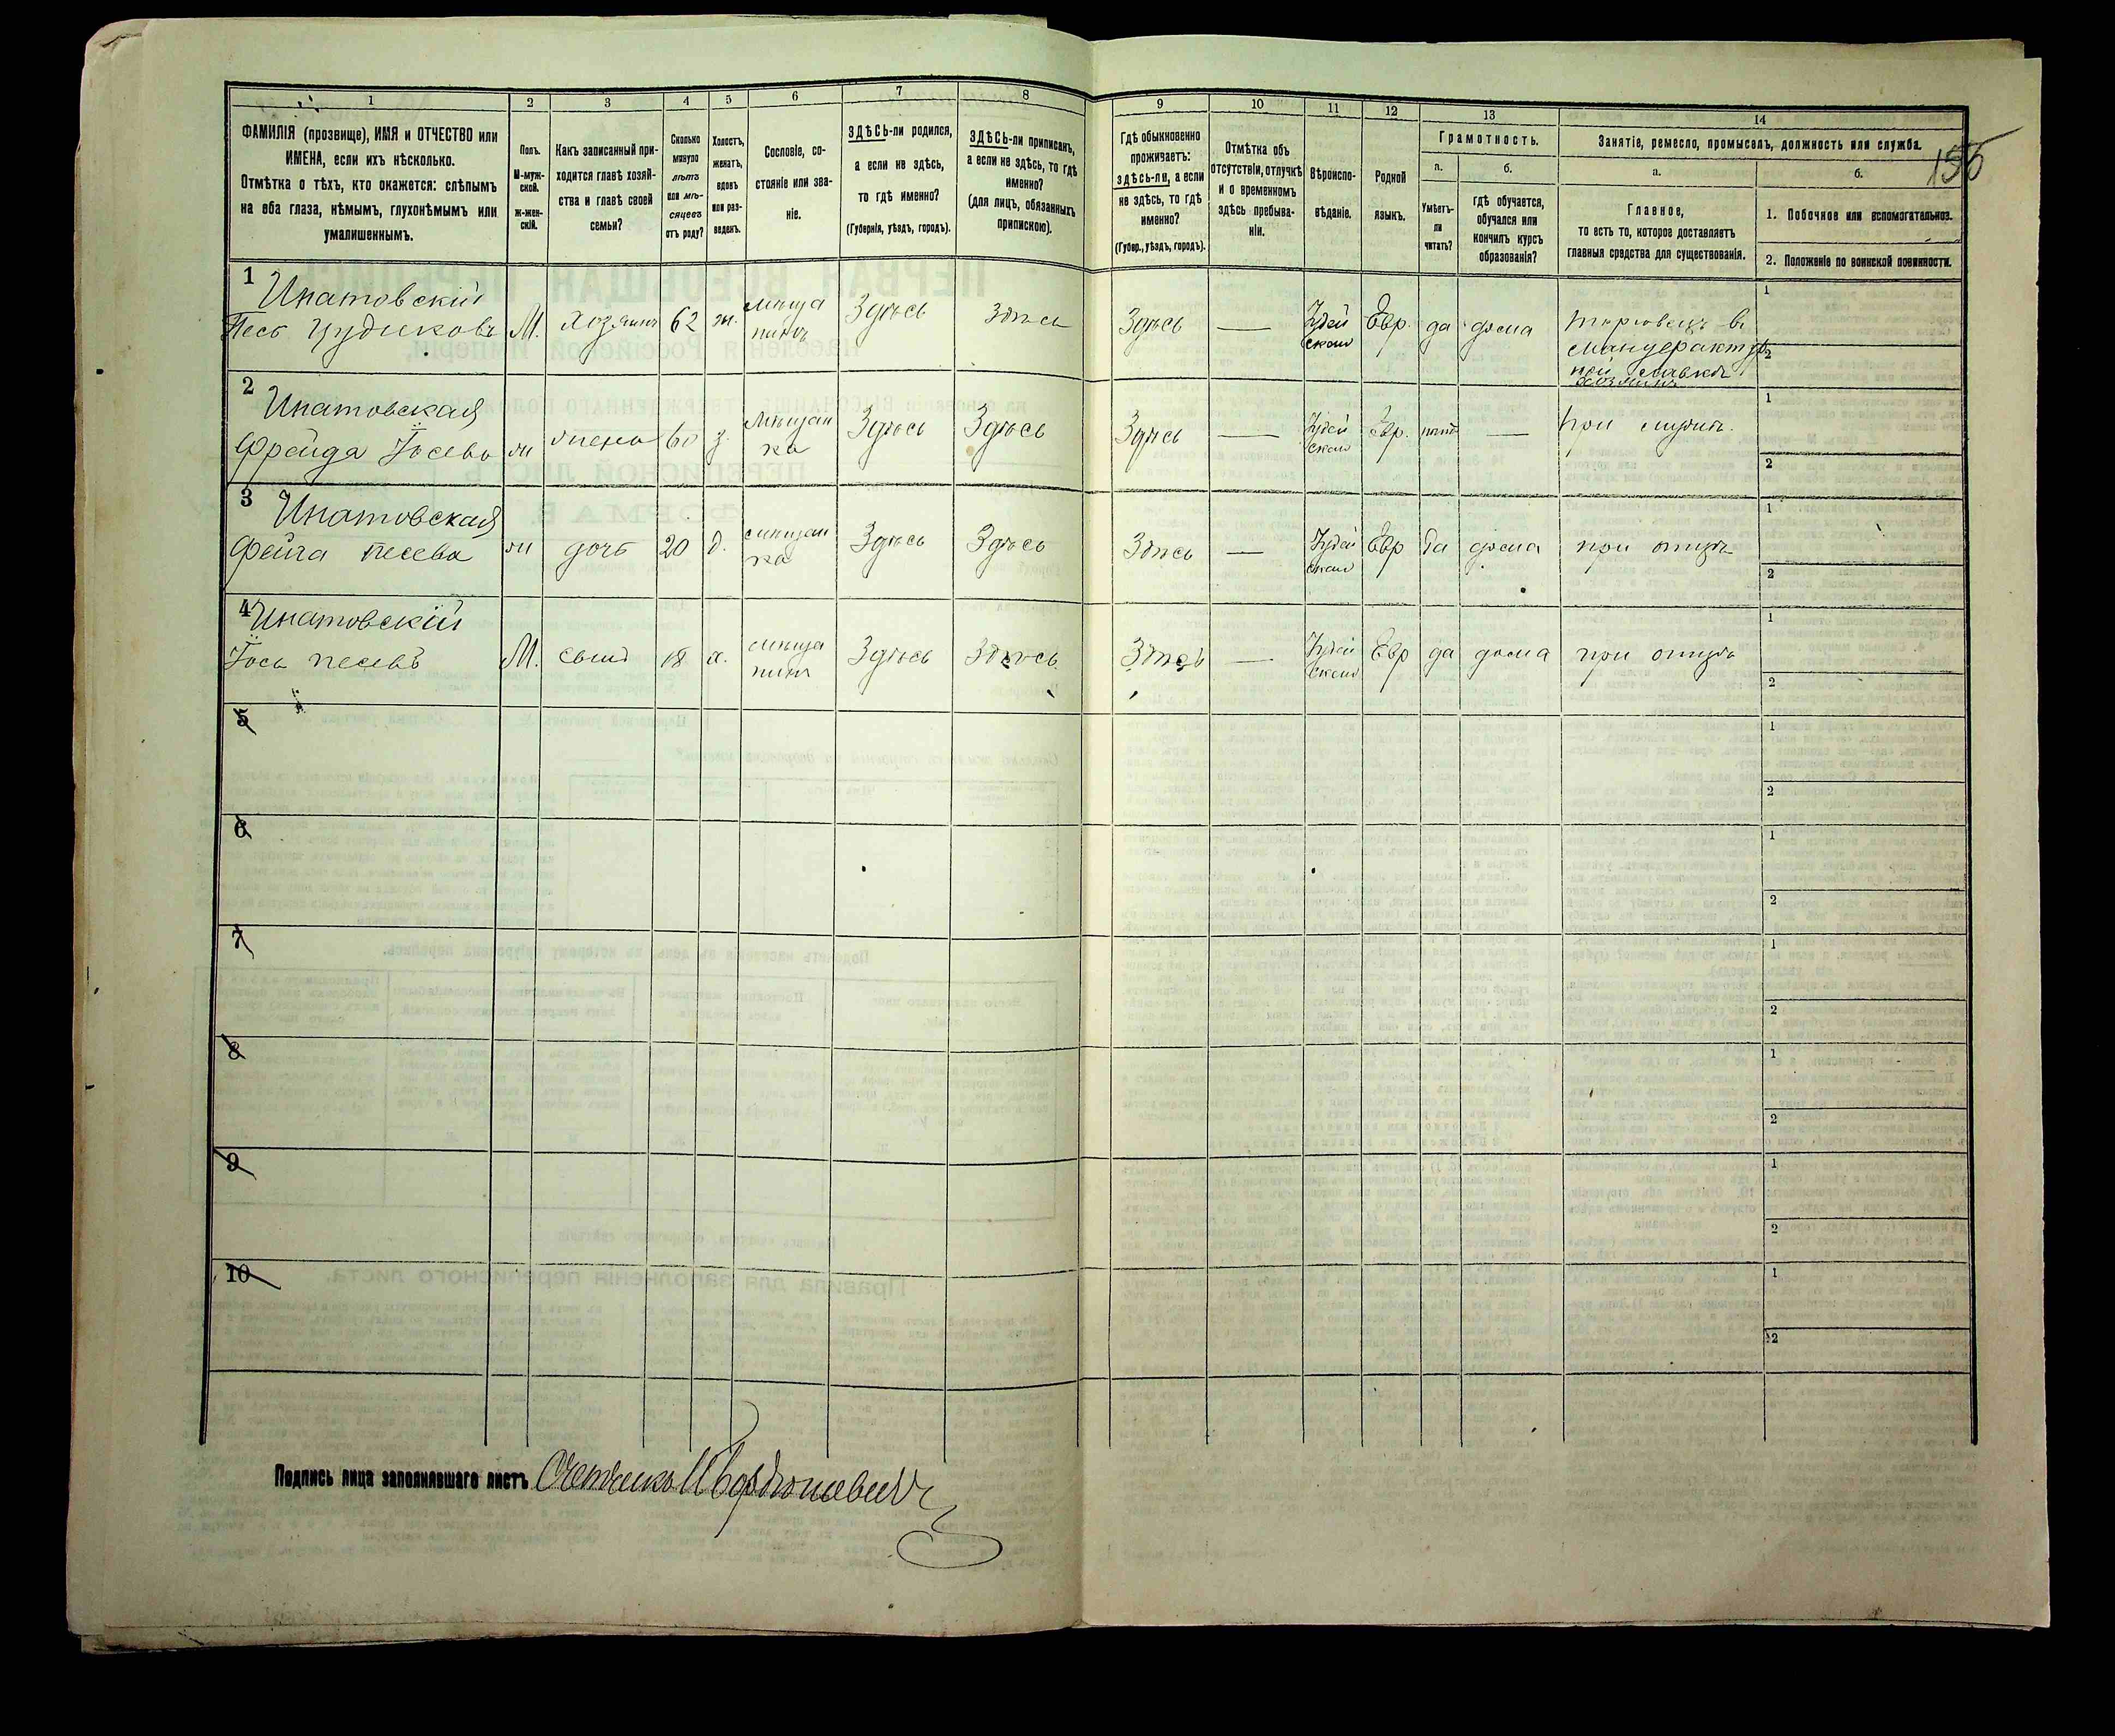 155
1 2 3 4 5 6 7 8 9 10 11 12 13 14
ФАМИЛІЯ (прозвище), ИМЯ и ОТЧЕСТВО или
ИМЕНА, если ихъ нѣсколько.
Отмѣтка о тѣхъ, кто окажется: слѣпымъ
на оба глаза, нѣмымъ, глухонѣмымъ или
умалишеннымъ.
Полъ.
М-муж-
ской.
ж-жен-
скій.
Какъ записанный при-
ходится главѣ хозяй-
ства и главѣ своей
семьи?
Сколько
минуло
лѣтъ
или мѣ-
сяцевъ
отъ роду?
Холостъ,
женатъ,
вдовъ
или раз-
веденъ.
Сословіе, со-
стояніе или зва-
ніе.
ЗДѢСЬ-ли родился,
а если не здѣсь,
то гдѣ именно?
(Губернія, уѣздъ, городъ).
ЗДѢСЬ-ли приписанъ,
а если не здѣсь, то гдѣ
именно?
(для лицъ, обязанныхъ
припискою).
Гдѣ обыкновенно
проживаетъ:
здѣсь-ли, а если
не здѣсь, то гдѣ
именно?
(Губер., уѣздъ, городъ).
Отмѣтка объ
отсутствіи, отлучкѣ
и о временномъ
здѣсь пребыва-
ніи.
Вѣроиспо-
вѣданіе.
Родной
языкъ.
Грамотность.
а.
Умѣетъ-
ли
читать?
б.
гдѣ обучается,
обучался или
кончилъ курсъ
образованія?
Занятіе, ремесло, промыселъ, должность или служба.
а.
Главное,
то есть то, которое доставляетъ
главныя средства для существованія.
б.
1. Побочное или вспомогательное.
2. Положеніе по воинской повинности.
1
Ипатовскій
Песъ Іудиковъ М. хозяинъ 62 ж. мѣща
нинъ Здѣсь Здѣсь Здѣсь — Іудей
ское Евр. да дома торговецъ въ
мануфактур
ной лавкѣ
хозяинъ
1
2
2
Ипатовская
Фрейда Іосева ж жена 60 з. мѣщан
ка Здѣсь Здѣсь Здѣсь — Іудей
ское Евр. нѣтъ — при мужѣ.
1
2
3
Ипатовская
Фейга Песева ж дочь 20 д. мѣщан
ка Здѣсь Здѣсь Здѣсь — Іудей
ское Евр да дома при отцѣ
1
2
4
Ипатовскій
Іось Песевъ М. сынъ 18 х. мѣща
нинъ Здѣсь Здѣсь Здѣсь — Іудей
ское Евр да дома при отцѣ
1
2
5
1
2
6
1
2
7
1
2
8
1
2
9
1
2
10
1
2
Подпись лица заполнявшаго листъ Счетчикъ